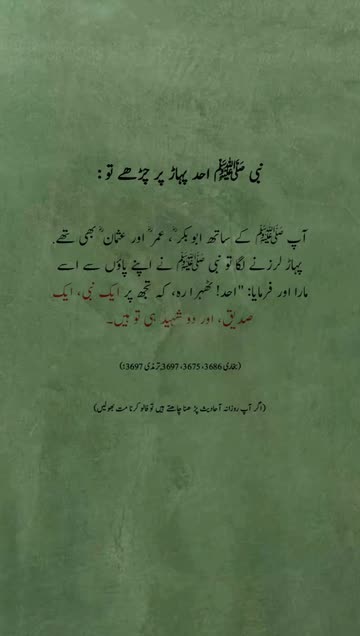 نبی ﷺ احد پہاڑ پر چڑھے تو :
آپ ﷺ کے ساتھ ابوبکرؓ، عمرؓ اور عثمانؓ بھی تھے.
پہاڑ لرزنے لگا تو نبی ﷺ نے اپنے پاؤں سے اسے
مارا اور فرمایا: "احد! ٹھہرا رہ، کہ تجھ پر ایک نبی، ایک
صدیق، اور دو شہید ہی تو ہیں۔
(بخاری 3686، 3675، 3697، ترمذی 3697:)
(اگر آپ روزانہ آحادیث پڑھنا چاہتے ہیں تو فالو کرنا مت بھولیں)